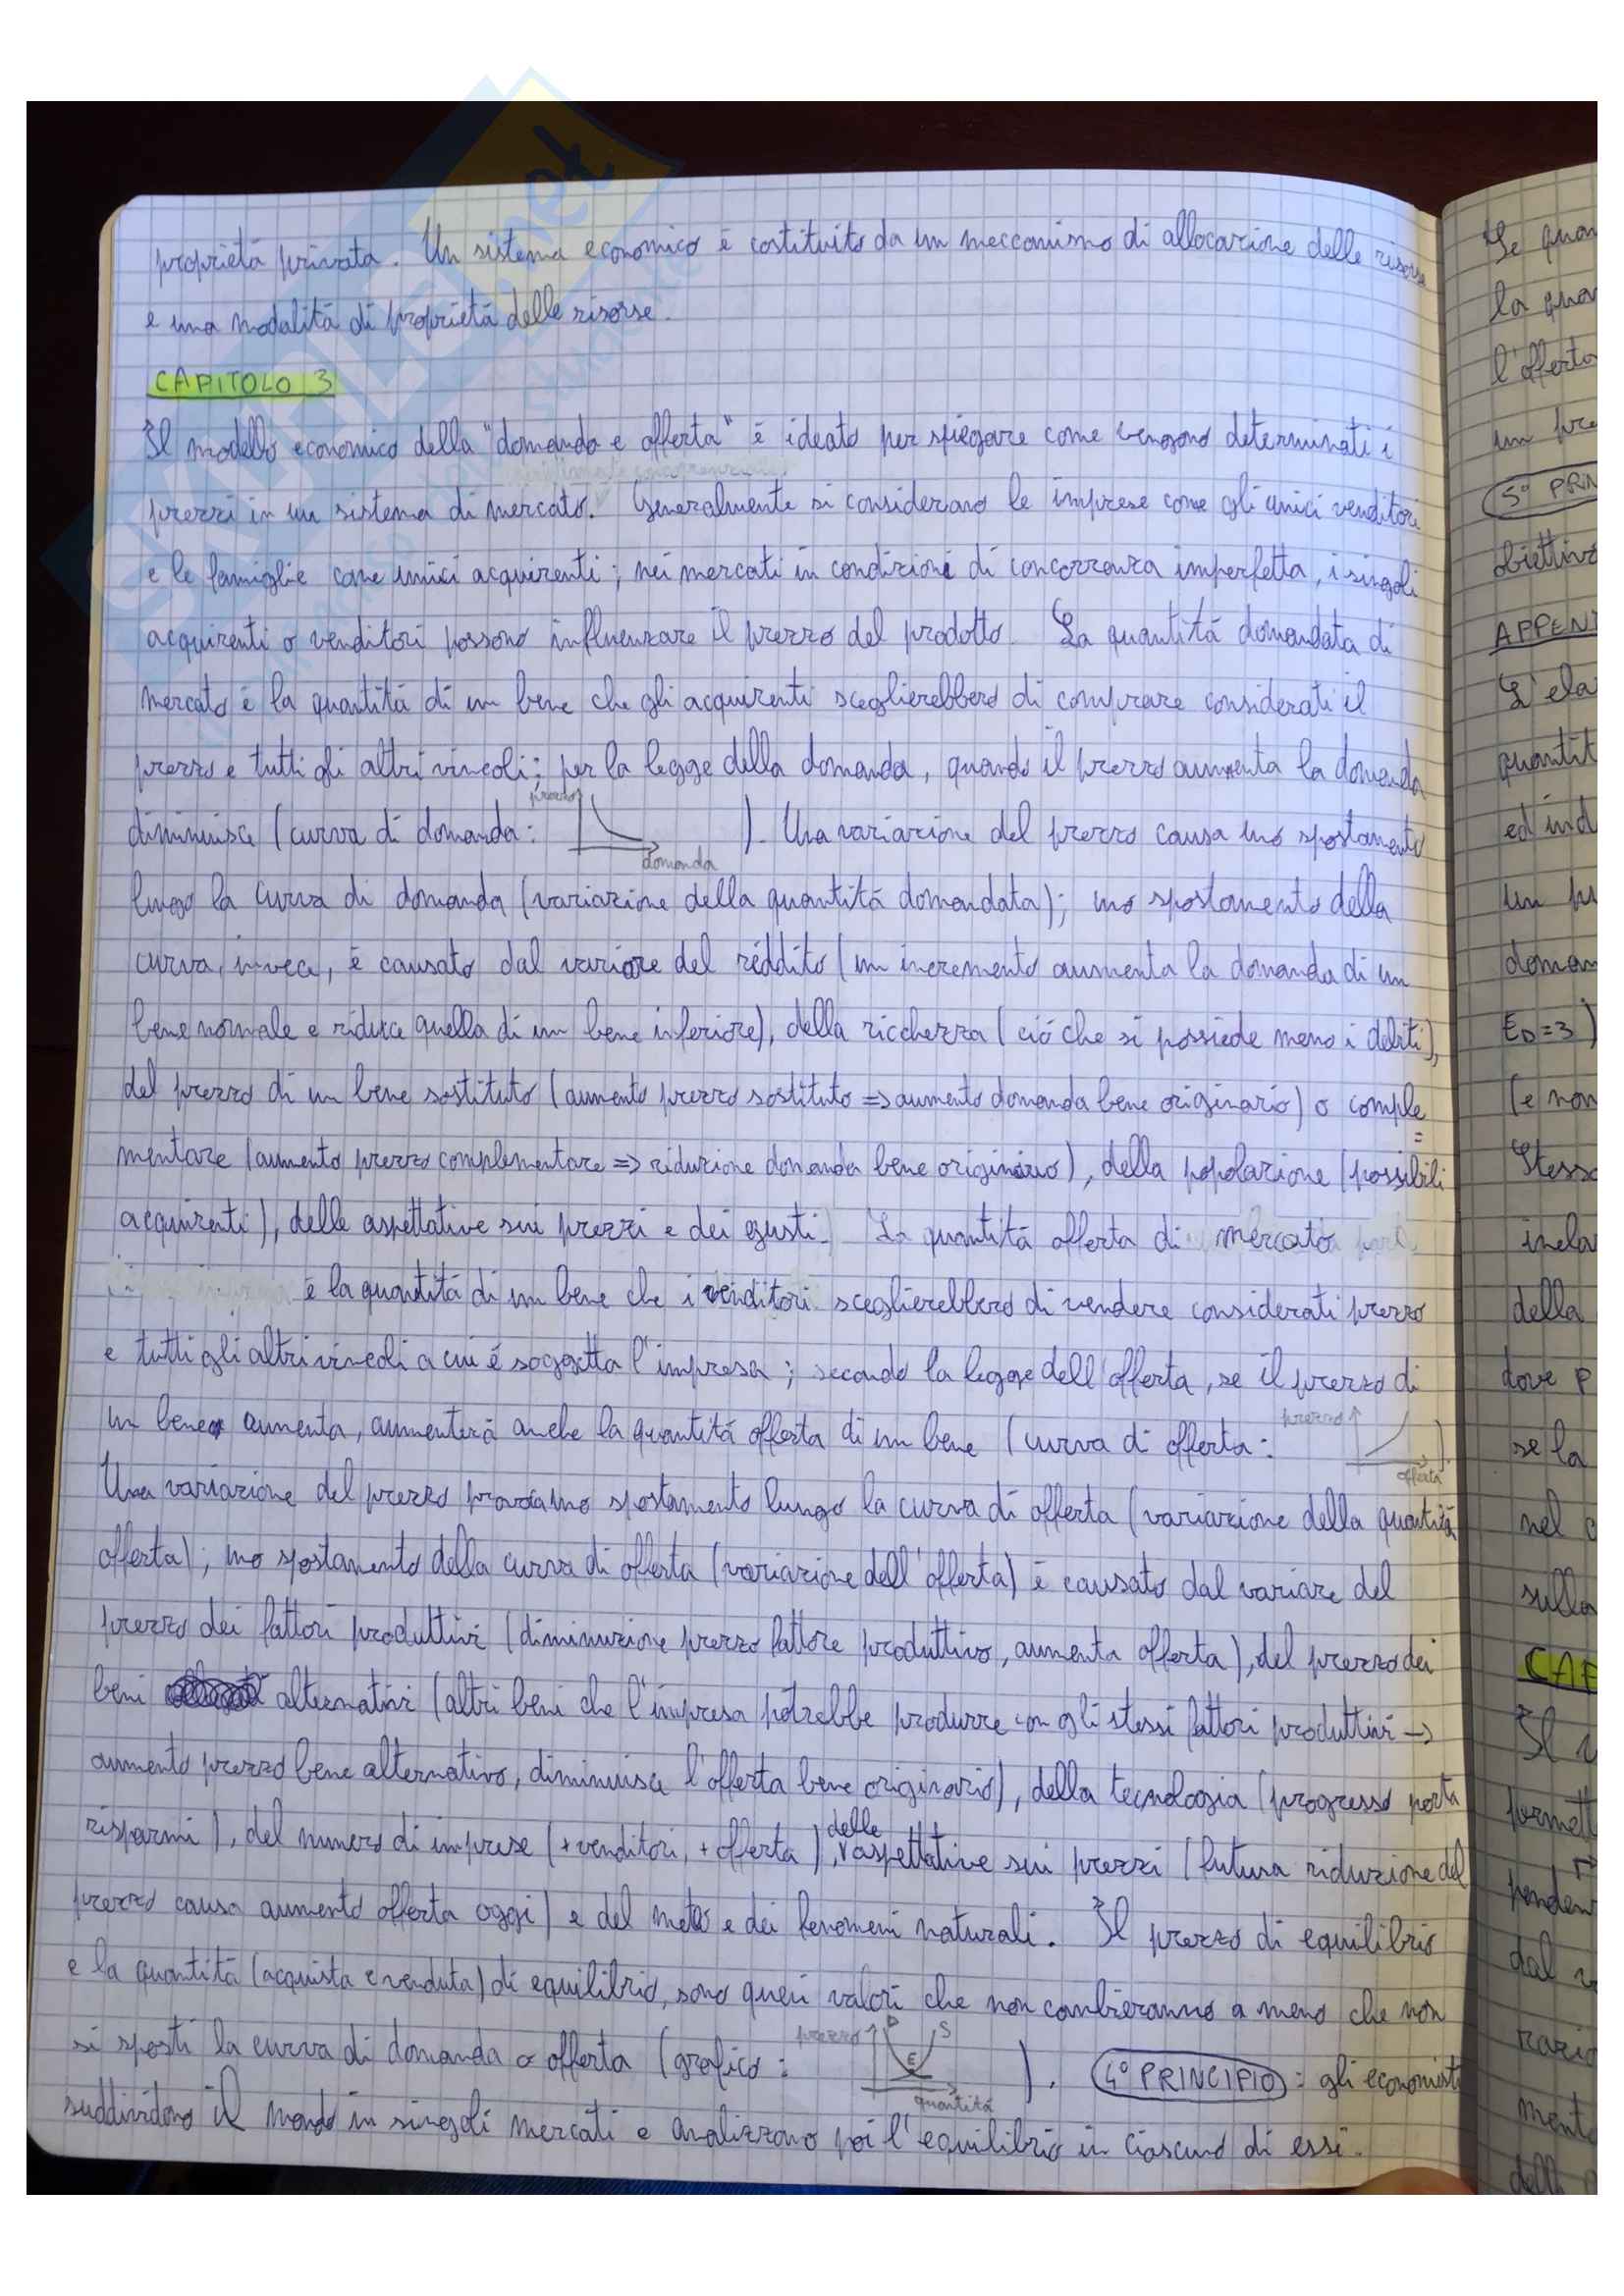 proprietà privata. Un sistema economico è costituito da un meccanismo di allocazione delle risorse
e una modalità di proprietà delle risorse.
CAPITOLO 3
Il modello economico della "domanda e offerta" è ideato per spiegare come vengono determinati i
prezzi in un sistema di mercato. Generalmente si considerano le imprese come gli unici venditori
e le famiglie come unici acquirenti; nei mercati in condizioni di concorrenza imperfetta, i singoli
acquirenti o venditori possono influenzare il prezzo del prodotto. La quantità domandata di
mercato è la quantità di un bene che gli acquirenti sceglierebbero di comprare considerati il
prezzo e tutti gli altri vincoli; per la legge della domanda, quando il prezzo aumenta la domanda
prezzo
diminuisce (curva di domanda: ). Una variazione del prezzo causa uno spostamento
domanda
lungo la curva di domanda (variazione della quantità domandata); uno spostamento della
curva, invece, è causato dal variare del reddito (un incremento aumenta la domanda di un
bene normale e riduce quella di un bene inferiore), della ricchezza (ciò che si possiede meno i debiti),
del prezzo di un bene sostituto (aumento prezzo sostituto => aumento domanda bene originario) o comple
=
mentare (aumento prezzo complementare => riduzione domanda bene originario), della popolazione (possibili
acquirenti), delle aspettative sui prezzi e dei gusti. La quantità offerta di mercato
è la quantità di un bene che i venditori sceglierebbero di vendere considerati prezzo
e tutti gli altri vincoli a cui è soggetta l'impresa; secondo la legge dell'offerta, se il prezzo di
un bene aumenta, aumenterà anche la quantità offerta di un bene (curva di offerta: prezzo ).
offerta
Una variazione del prezzo provoca uno spostamento lungo la curva di offerta (variazione della quantità
offerta); uno spostamento della curva di offerta (variazione dell'offerta) è causato dal variare del
prezzo dei fattori produttivi (diminuzione prezzo fattore produttivo, aumenta offerta), del prezzo dei
beni alternativi (altri beni che l'impresa potrebbe produrre con gli stessi fattori produttivi →
aumento prezzo bene alternativo, diminuisce l'offerta bene originario), della tecnologia (progresso porta
risparmi), del numero di imprese (+ venditori, + offerta), delle aspettative sui prezzi (futura riduzione del
prezzo causa aumento offerta oggi) e del meteo e dei fenomeni naturali. Il prezzo di equilibrio
e la quantità (acquista e venduta) di equilibrio, sono quei valori che non cambieranno a meno che non
si sposti la curva di domanda o offerta (grafico: prezzo D S E ). 4° PRINCIPIO: gli economisti
quantità
suddividono il mondo in singoli mercati e analizzano poi l'equilibrio in ciascuno di essi.
Se quan
la quan
l'offerta
un pre
5° PRIN
obiettivo
APPEN
L'ela
quantit
ed ind
un
doman
ED=3)
(e non
Stess
inela
della
dove P
se la
nel
sulla
CAP
Il
permett
penden
dal
mento